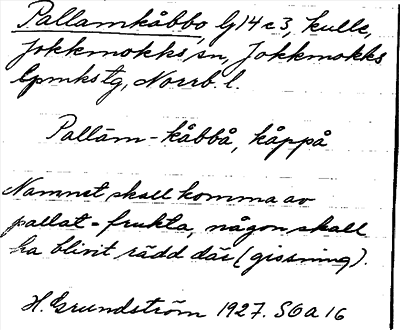 Pallamkåbbo G14 c3, kulle,
Jokkmokks sn, Jokkmokks
lpmkstg, Norrb. l.
Pallām-kåbbå, kåppå
Namnet skall komma av
pallat = frukta, någon skall
ha blivit rädd där (gissning).
H. Grundström 1927. S6a16